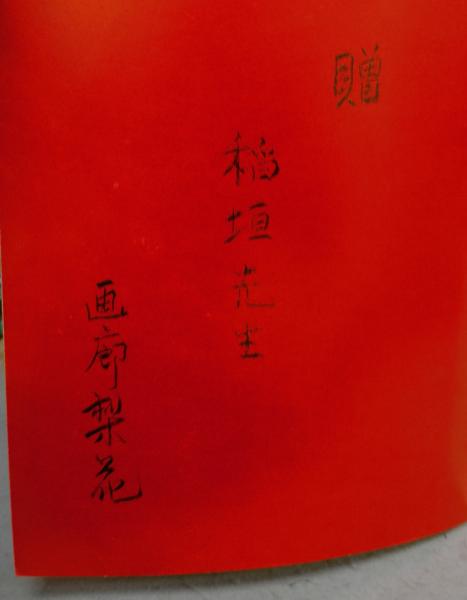 贈
稲垣先生
画廊梨花